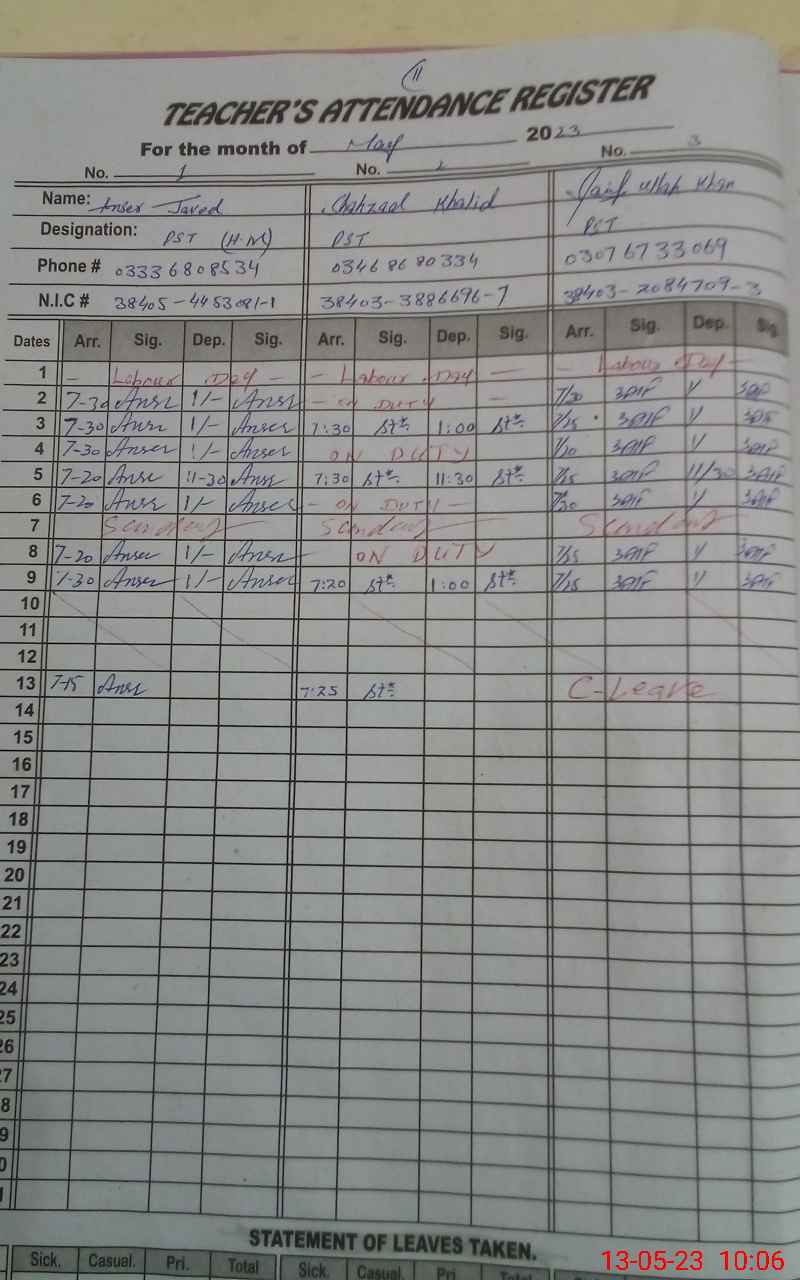 11
TEACHER'S ATTENDANCE REGISTER
For the month of May 2023
No. 1 No. 2 No. 3
Name: Anser Javed Shahzad Khalid Ullah Khan
Designation: PST (H.M) PST PST
Phone # 0333 6808534 0346 86 80 334 0307 67 33 069
N.I.C # 38405-4453081-1 38403-3886696-7 38403-2084709-3
Dates Arr. Sig. Dep. Sig. Arr. Sig. Dep. Sig. Arr. Sig. Dep. Sig.
1 - Labour Day - - Labour Day - - Labour Day -
2 7-30 Anser 1/- Anser - ON DUTY - 7/30 1/
3 7-30 Anser 1/- Anser 7:30 1:00 7/25 1/
4 7-30 Anser 1/- Anser ON DUTY 7/20 1/
5 7-20 Anser 11-30 Anser 7:30 11:30 7/15 11/30
6 7-20 Anser 1/- Anser - ON DUTY - 7/20 1/
7 Sunday Sunday Sunday
8 7-20 Anser 1/- Anser ON DUTY 7/25 1/
9 7-30 Anser 1/- Anser 7:20 1:00 7/25 1/
10
11
12
13 7-15 Anser 7:25 C-Leave
14
15
16
17
18
19
20
21
22
23
24
25
26
7
8
9
0
STATEMENT OF LEAVES TAKEN.
Sick. Casual. Pri. Total Sick. Casual. Pri. Total
13-05-23 10:06